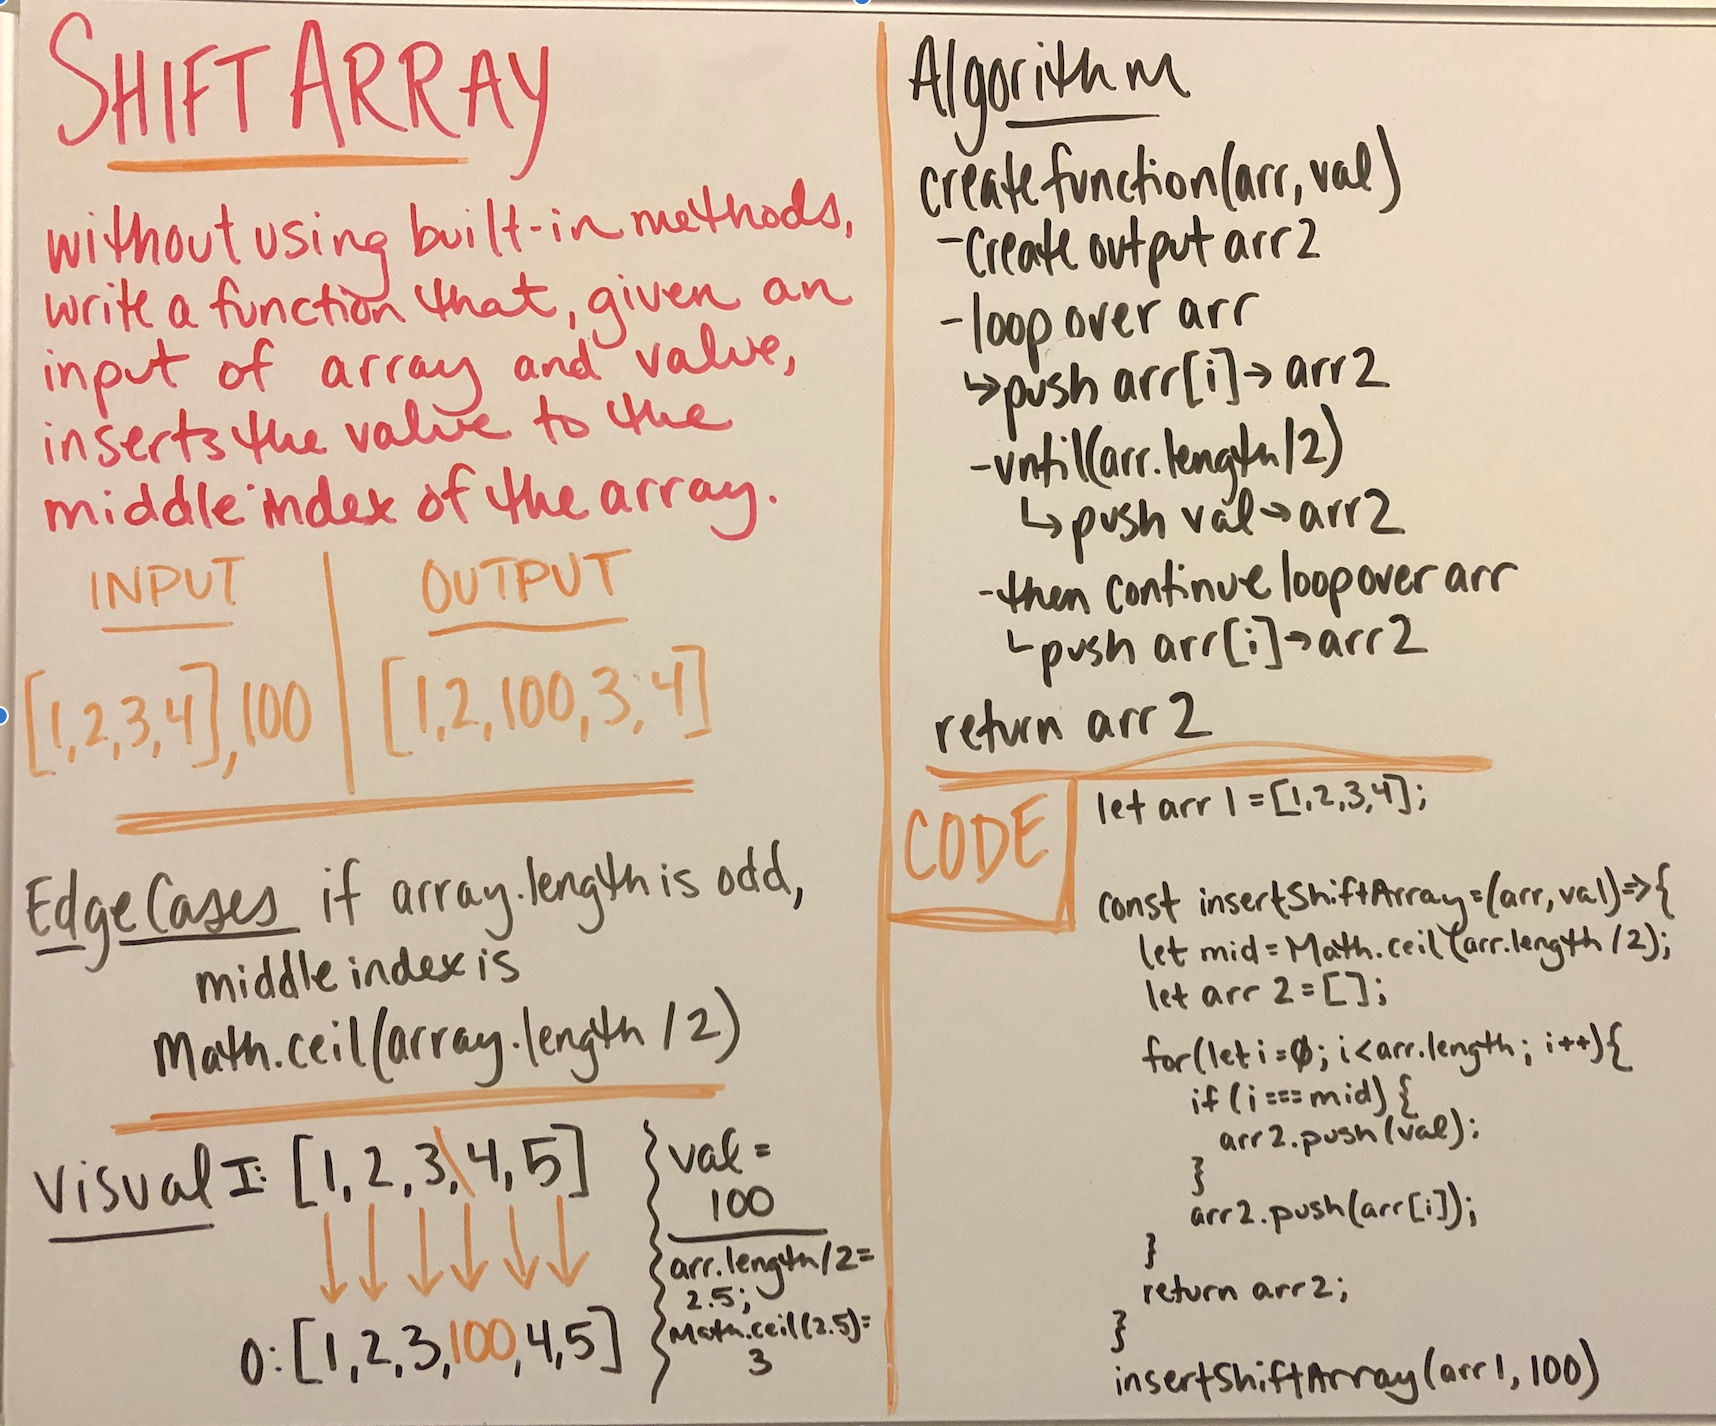 SHIFT ARRAY
without using built-in methods,
write a function that, given an
input of array and value,
inserts the value to the
middle index of the array.
INPUT
OUTPUT
[1,2,3,4],100
[1,2,100,3,4]
Edge Cases if array.length is odd,
middle index is
Math.ceil(array.length /2)
Visual I: [1,2,3,4,5]
O: [1,2,3,100,4,5]
val =
100
arr.length/2=
2.5;
Math.ceil(2.5)=
3
Algorithm
create function(arr, val)
-Create output arr2
-loop over arr
↳push arr[i]→ arr2
-until(arr.length/2)
↳push val→arr2
-then continue loop over arr
└push arr[i]→arr2
return arr2
CODE
let arr1=[1,2,3,4];
const insertShiftArray=(arr, val)=>{
let mid=Math.ceil(arr.length /2);
let arr2=[];
for(let i=0; i<arr.length; i++){
if (i===mid) {
arr2.push(val);
}
arr2.push(arr[i]);
}
return arr2;
}
insertShiftArray(arr1, 100)